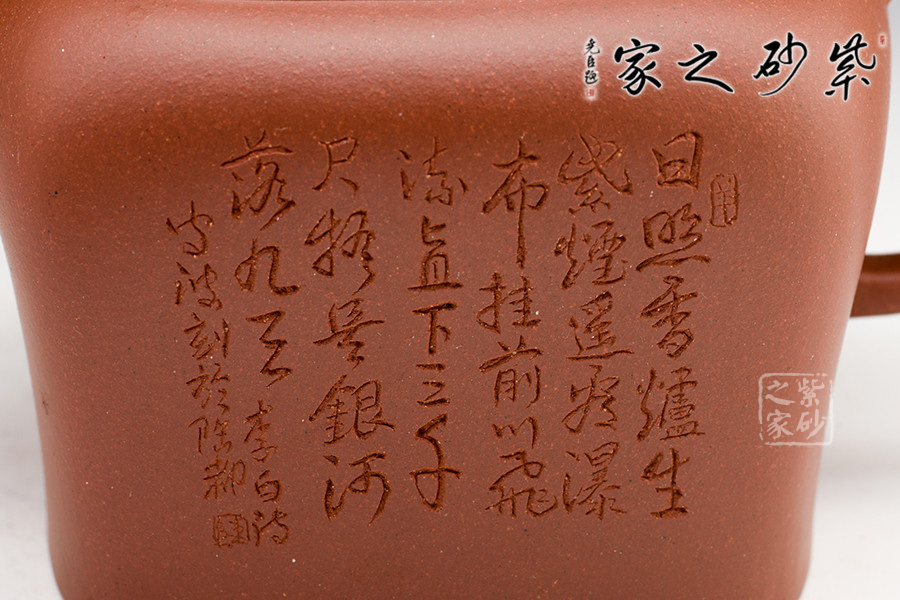 紫砂之家
堯臣題
日照香爐生
紫煙遥看瀑
布挂前川飛
流直下三千
尺疑是銀河
落九天 李白詩
刻於陶都
紫砂
之家